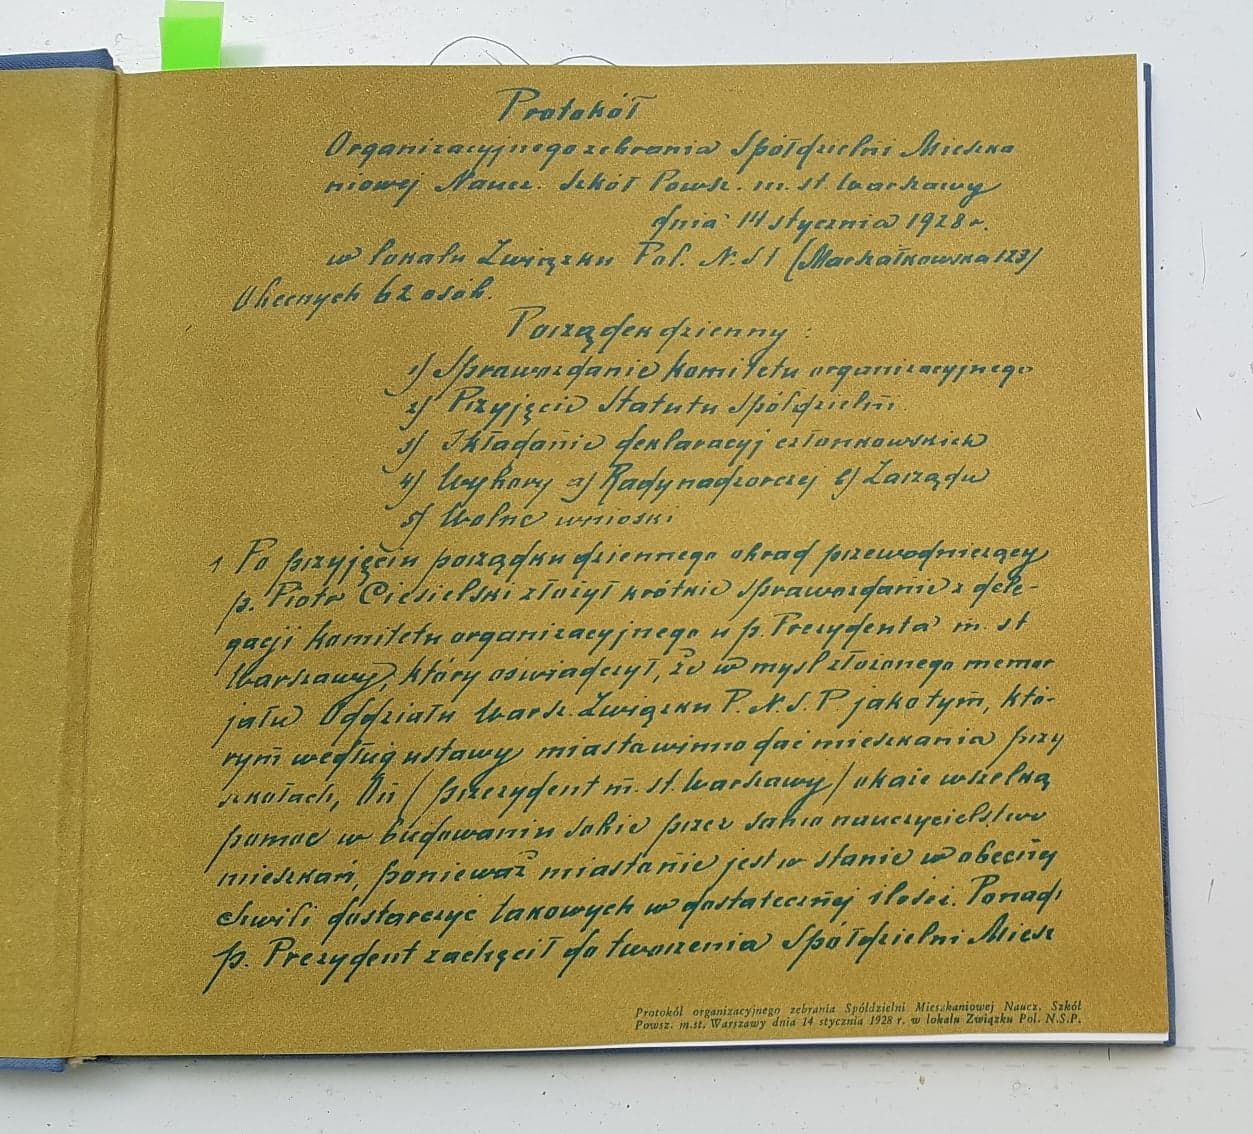 Protokół
Organizacyjnego zebrania Spółdzielni Mieszka
niowej Naucz. Szkół Powsz. m. st. Warszawy
dnia 14 stycznia 1928 r.
w lokalu Związku Pol. N.S.P. (Marszałkowska 123)
Obecnych 62 osób.
Porządek dzienny :
1) Sprawozdanie komitetu organizacyjnego
2) Przyjęcie Statutu Spółdzielni.
3) Składanie deklaracyj członkowskich
4) Wybory a) Rady nadzorczej b) Zarządu
5) Wolne wnioski
1 Po przyjęciu porządku dziennego obrad przewodniczący
p. Piotr Ciesielski złożył krótkie sprawozdanie z dele-
gacji komitetu organizacyjnego u p. Prezydenta m. st
Warszawy, który oświadczył, że w myśl złożonego memor
jału Oddziału Warsz. Związku P.N.S.P. jako tym, któ-
rym według ustawy miasta winno dać mieszkania przy
szkołach, On (prezydent m. st. Warszawy) okaże wszelką
pomoc w budowaniu sobie przez samo nauczycielstwo
mieszkań, ponieważ miasto nie jest w stanie w obecnej
chwili dostarczyć takowych w dostatecznej ilości. Ponad
p. Prezydent zachęcił do tworzenia Spółdzielni Miesz
Protokół organizacyjnego zebrania Spółdzielni Mieszkaniowej Naucz. Szkół
Powsz. m.st. Warszawy dnia 14 stycznia 1928 r. w lokalu Związku Pol. N.S.P.